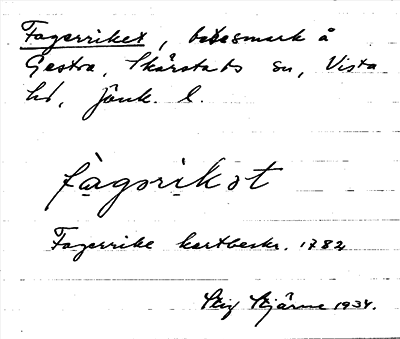 Fagerriket, betesmark å
Gestra, Skärstads sn, Vista
hd, Jönk. l.
fàgərikət
Fagerrike kartbeskr. 1782
Stig Stjärne 1934.